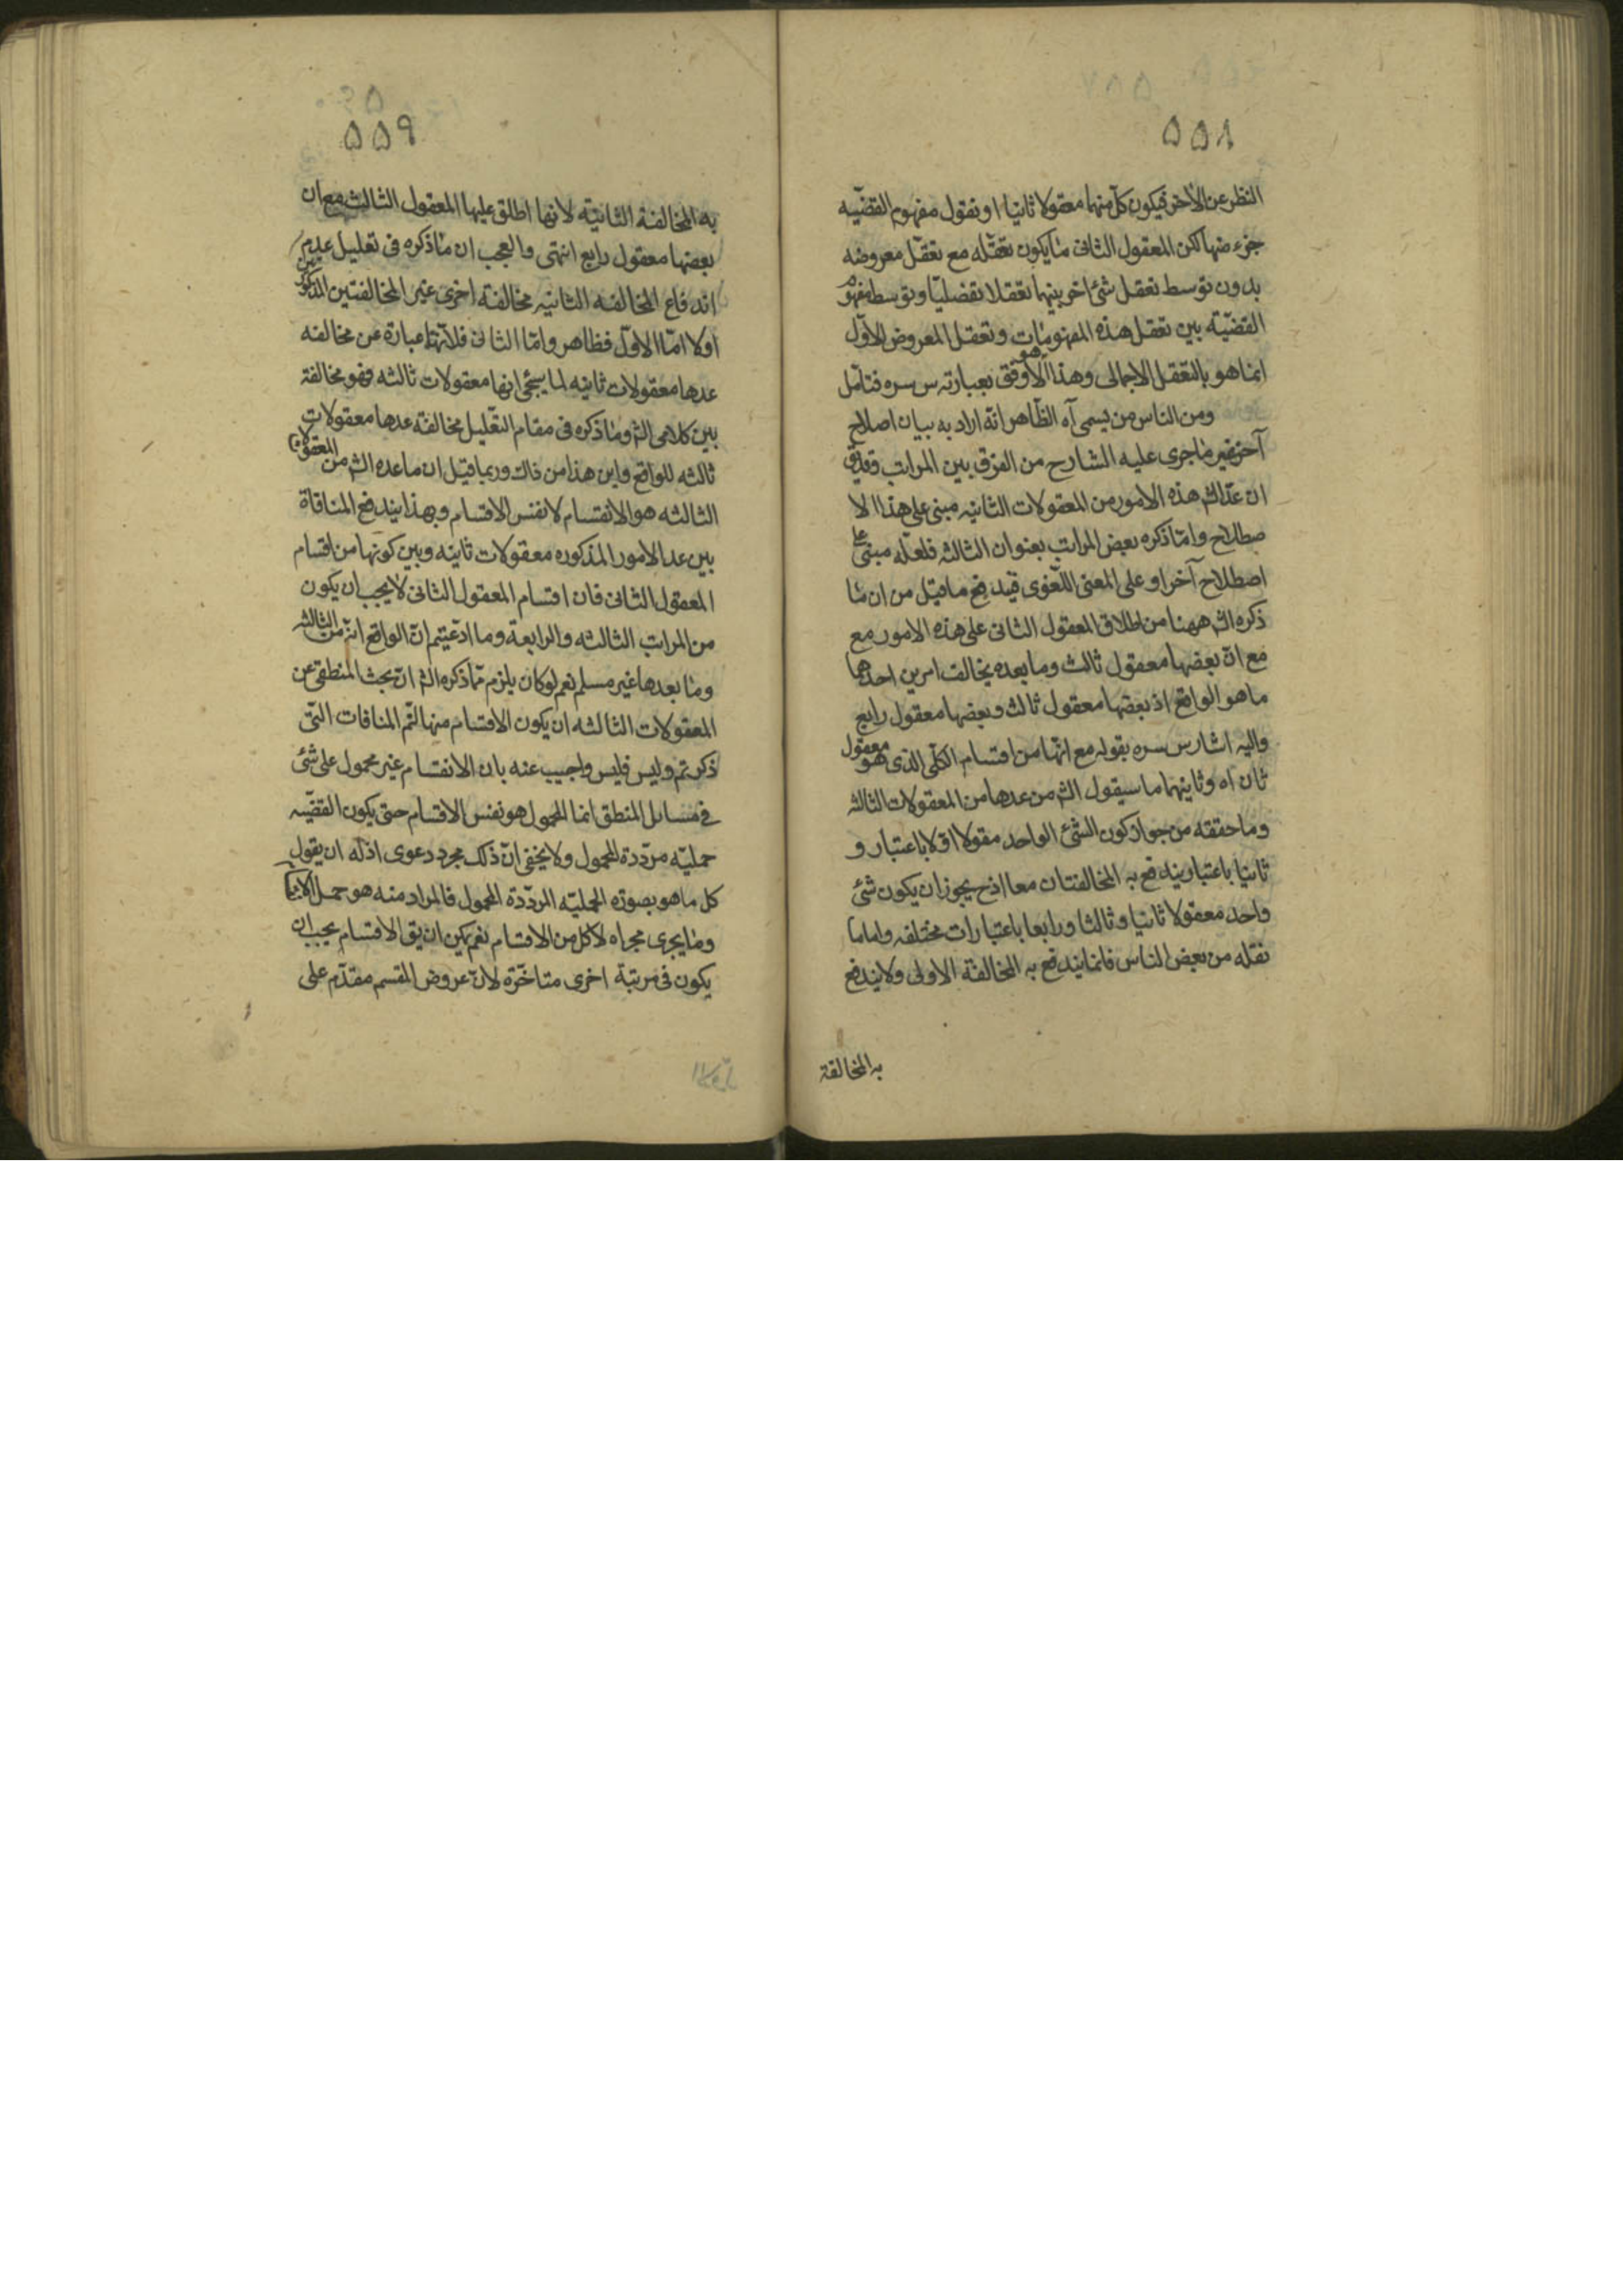 ۵۵۸
النظر عن الآخر فيكون كل منهما معقولا ثانيا او نقول مفهوم القضيه
جزء منها لكن المعقول الثانى ما يكون تعقّله مع تعقّل معروضه
بدون توسط تعقل شئ اخر بينهما تعقلا تفصليا وتوسط مفهوم
القضيّه بين تعقل هذه المفهومات وتعقل المعروض الاوّل
انما هو بالتعقل الاجمالى وهذا هو الاوفق بعبارته س سره فتامّل
ومن الناس من يسمى آه الظاهر انه اراد به بيان اصلاح
آخر غير ما جرى عليه الشارح من الفرق بين المراتب
ان عدّ الش هذه الامور من المعقولات الثانيه مبنى على هذا الا
صطلاح وامّا ذكره بعض المراتب بعنوان الثالثه فلعله مبنى على
اصطلاح آخر او على المعنى اللغوى فيندفع ما قيل من ان ما
ذكره الش ههنا من اطلاق المعقول الثانى على هذه الامور مع
مع انّ بعضها معقول ثالث وما بعده يخالف امرين احدهما
ما هو الواقع اذ بعضها معقول ثالث وبعضها معقول رابع
واليه اشار س سره بقوله مع انّها من اقسام الكلّى الذى هو معقول
ثان اه وثانيهما ما سيقول الش من عدها من المعقولات الثالثه
وما حققه من جواز كون الشئ الواحد مقولا اوّلا باعتبار و
ثانيا باعتبار يندفع به المخالفتان معا اذ ح يجوز ان يكون شئ
واحد معقولا ثانيا وثالثا ورابعا باعتبارات مختلفه واما ما
نقله من بعض الناس فانما يندفع به المخالفة الاولى ولا يندفع
به المخالفة
۵۵۹
به المخالفة الثانيّة لانها اطلق عليها المعقول الثالث مع ان
بعضها معقول رابع انتهى والعجب ان ما ذكره فى تعليل عدم
اندفاع المخالفه الثانيه مخالفة اخرى غير المخالفتين المذكورتين
اولا امّا الاوّل فظاهر وامّا الثانى فلانها عبارة عن مخالفه
عدها معقولات ثانيه لما سيجئ انها معقولات ثالثه فهو مخالفة
بين كلامى الش وما ذكره فى مقام التعليل مخالفة عدها معقولات
ثالثه للواقع واين هذا من ذاك وربما قيل ان ما عده الش من المعقولات
الثالثه هو الانقسام لا نفس الاقسام وبهذا يندفع المنافاة
بين عد الامور المذكوره معقولات ثانيه وبين كونها من اقسام
المعقول الثانى فان اقسام المعقول الثانى لا يجب ان يكون
من المراتب الثالثه والرابعة وما ادّعيتم انّ الواقع انه من الثالثه
وما بعدها غير مسلم نعم لو كان يلزم مما ذكره الش انّ بحث المنطقى عن
المعقولات الثالثه ان يكون الاقسام منها لتمّ المنافات التى
ذكرتم وليس فليس واجيب عنه بان الانقسام غير محمول على شئ
فى مسائل المنطق انما المحمول هو نفس الاقسام حتى يكون القضيه
حمليّه مردّدة المحمول ولا يخفى انّ ذلك مجرد دعوى اذ له ان يقول
كل ما هو بصورة الحمليّه المردّدة المحمول فالمراد منه هو حمل الانقسام
وما يجرى مجراه لا كل من الاقسام نعم يمكن ان يق الاقسام يجب ان
يكون فى مرتبة اخرى متاخّرة لانّ عروض المقسم مقدّم على